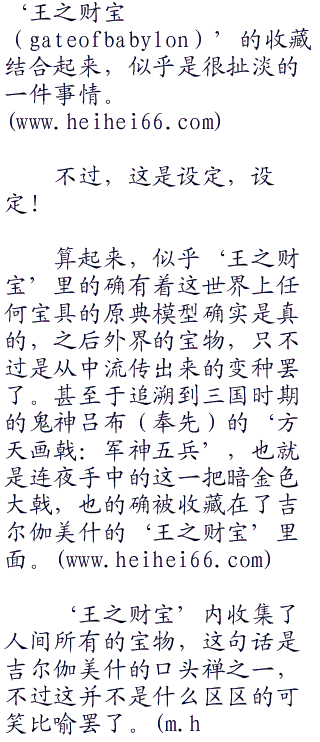 ‘王之财宝
（gateofbabylon）’的收藏
结合起来，似乎是很扯淡的
一件事情。
(www.heihei66.com)
不过，这是设定，设
定！
算起来，似乎‘王之财
宝’里的确有着这世界上任
何宝具的原典模型确实是真
的，之后外界的宝物，只不
过是从中流传出来的变种罢
了。甚至于追溯到三国时期
的鬼神吕布（奉先）的‘方
天画戟：军神五兵’，也就
是连夜手中的这一把暗金色
大戟，也的确被收藏在了吉
尔伽美什的‘王之财宝’里
面。(www.heihei66.com)
‘王之财宝’内收集了
人间所有的宝物，这句话是
吉尔伽美什的口头禅之一，
不过这并不是什么区区的可
笑比喻罢了。(m.h